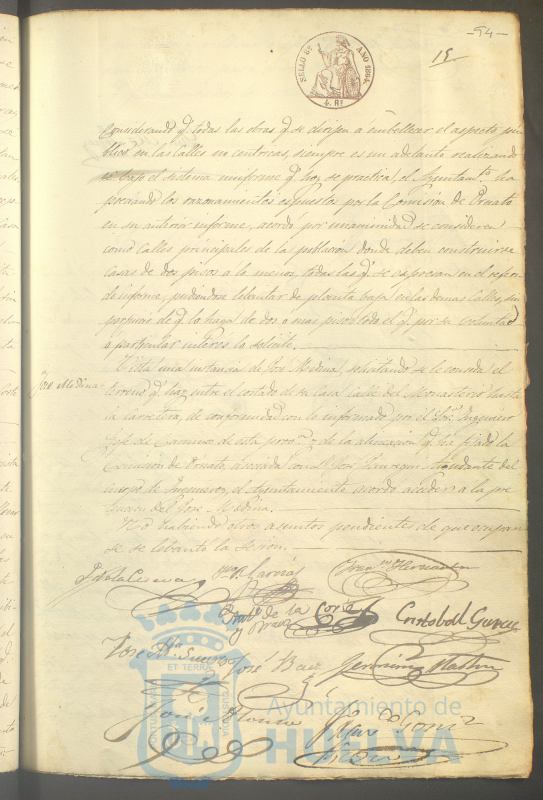 -54-
15
SELLO 8º AÑO 1864.
4. Rs
Considerando q. todas las obras q. se dirijen á embellecer el aspecto pú-
blico en las calles no centricas, siempre es un adelanto realizando
se bajo el sistema uniforme q. hoy se practica, el Ayuntamto.
los razonamientos espuestos por la Comision de Ornato
en su anterior informe, acordó por unanimidad se consideren
como calles principales de la poblacion donde deben construirse
casas de dos pisos a lo menos, todas las q. se espresan en el referi-
do informe, pudiendose lebantar de planta baja en las demas calles, sin
perjuicio de q. lo haga de dos o mas pisos todo el q. por su voluntad
o particular interes lo solicite.
José Medina
Vista una instancia de José Medina, solicitando se le conceda el
terreno q. hay entre el costado de su casa calle del Monasterio hasta
la carretera, de conformidad con lo informado por el Sor. Ingeniero
Jefe de Caminos de esta prova. y de la alineacion q. ha fijado la
Comision de Ornato, asociada con D. José Ayudante del
cuerpo de Ingenieros, el Ayuntamiento acordó acceder a la pre-
tension del José Medina.
No habiendo otros asuntos pendientes de que ocupar-
se se lebantó la sesion.
P. de la Cueva
Garcia
Franco. Hernandez
de la Corte
y Bravo
Cristobal Garcia
José Ma. Suero
José Baez
Jeronimo Martin
José Alonso
ET TERRAE
CUSTODIA
Ayuntamiento de
HUELVA